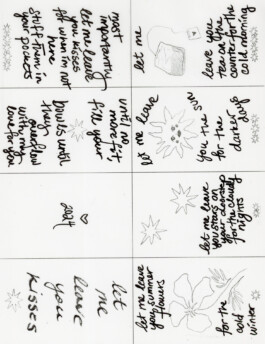 let
me
leave
you
kisses
let me leave
you summer
flowers
for the
cold
winter
let me leave
you stars on
your doorstep
for the cloudy
nights
let me leave
you the sun
for the
darker
days
let me
leave you
tea on the
counter for the
cold morning
most
importantly
let me leave
you kisses
for when im not
here
stuff them in
your pockets
until no
more fit,
fill your
bowls until
they
overflow
with my
love for you
2024